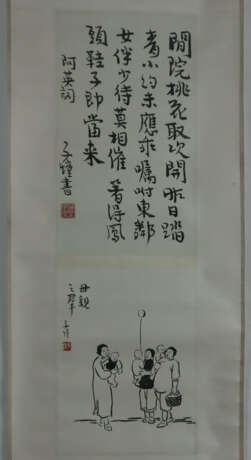 閒院桃花取次開昨日踏
青小約未應乖囑咐東鄰
女伴少待莫相催著得鳳
頭鞋子即當来
阿英詞
子愷書
母親
之羣